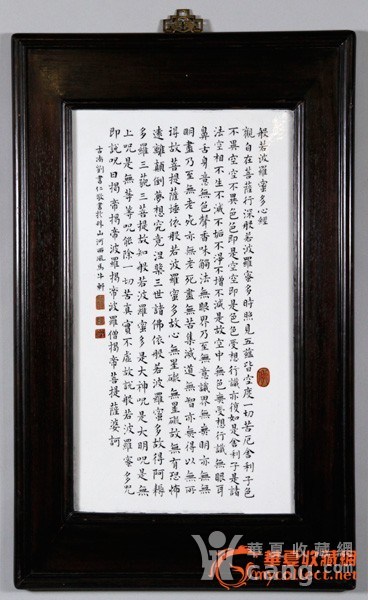 般若波羅蜜多心經
觀自在菩薩行深般若波羅蜜多時照見五蘊皆空度一切苦厄舍利子色
不異空空不異色色即是空空即是色受想行識亦復如是舍利子是諸
法空相不生不滅不垢不淨不增不減是故空中無色無受想行識無眼耳
鼻舌身意無色聲香味觸法無眼界乃至無意識界無無明亦無無
明盡乃至無老死亦無老死盡無苦集滅道無智亦無得以無所
得故菩提薩埵依般若波羅蜜多故心無罣礙無罣礙故無有恐怖
遠離顛倒夢想究竟涅槃三世諸佛依般若波羅蜜多故得阿耨
多羅三藐三菩提故知般若波羅蜜多是大神呪是大明呪是無
上呪是無等等呪能除一切苦真實不虛故說般若波羅蜜多呪
即說呪曰揭帝揭帝波羅揭帝波羅僧揭帝菩提薩婆訶
劉書仁敬書於珠山河西風馬牛軒
華夏收藏網
cang.com
華夏收藏網
mycollect.net